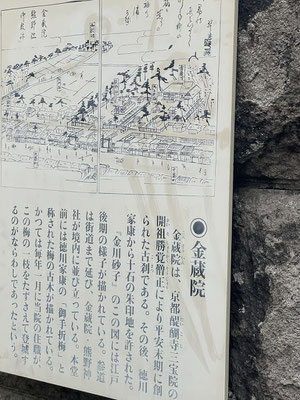 ◉金蔵院
金蔵院は、京都醍醐寺三宝院の
開祖勝覚僧正により平安末期に創
られた古刹である。その後、徳川
家康から十石の朱印地を許された。
「金川砂子」のこの図には江戸
後期の様子が描かれている。参道
は街道まで延び、金蔵院・熊野神
社が境内に並び立っている。本堂
前には徳川家康の「御手折梅」と
称された梅の古木が描かれている。
かつては毎年一月に当院の住職が
この梅の一枝をたずさえて登城す
るのがならわしであったという。
金蔵院
熊野社